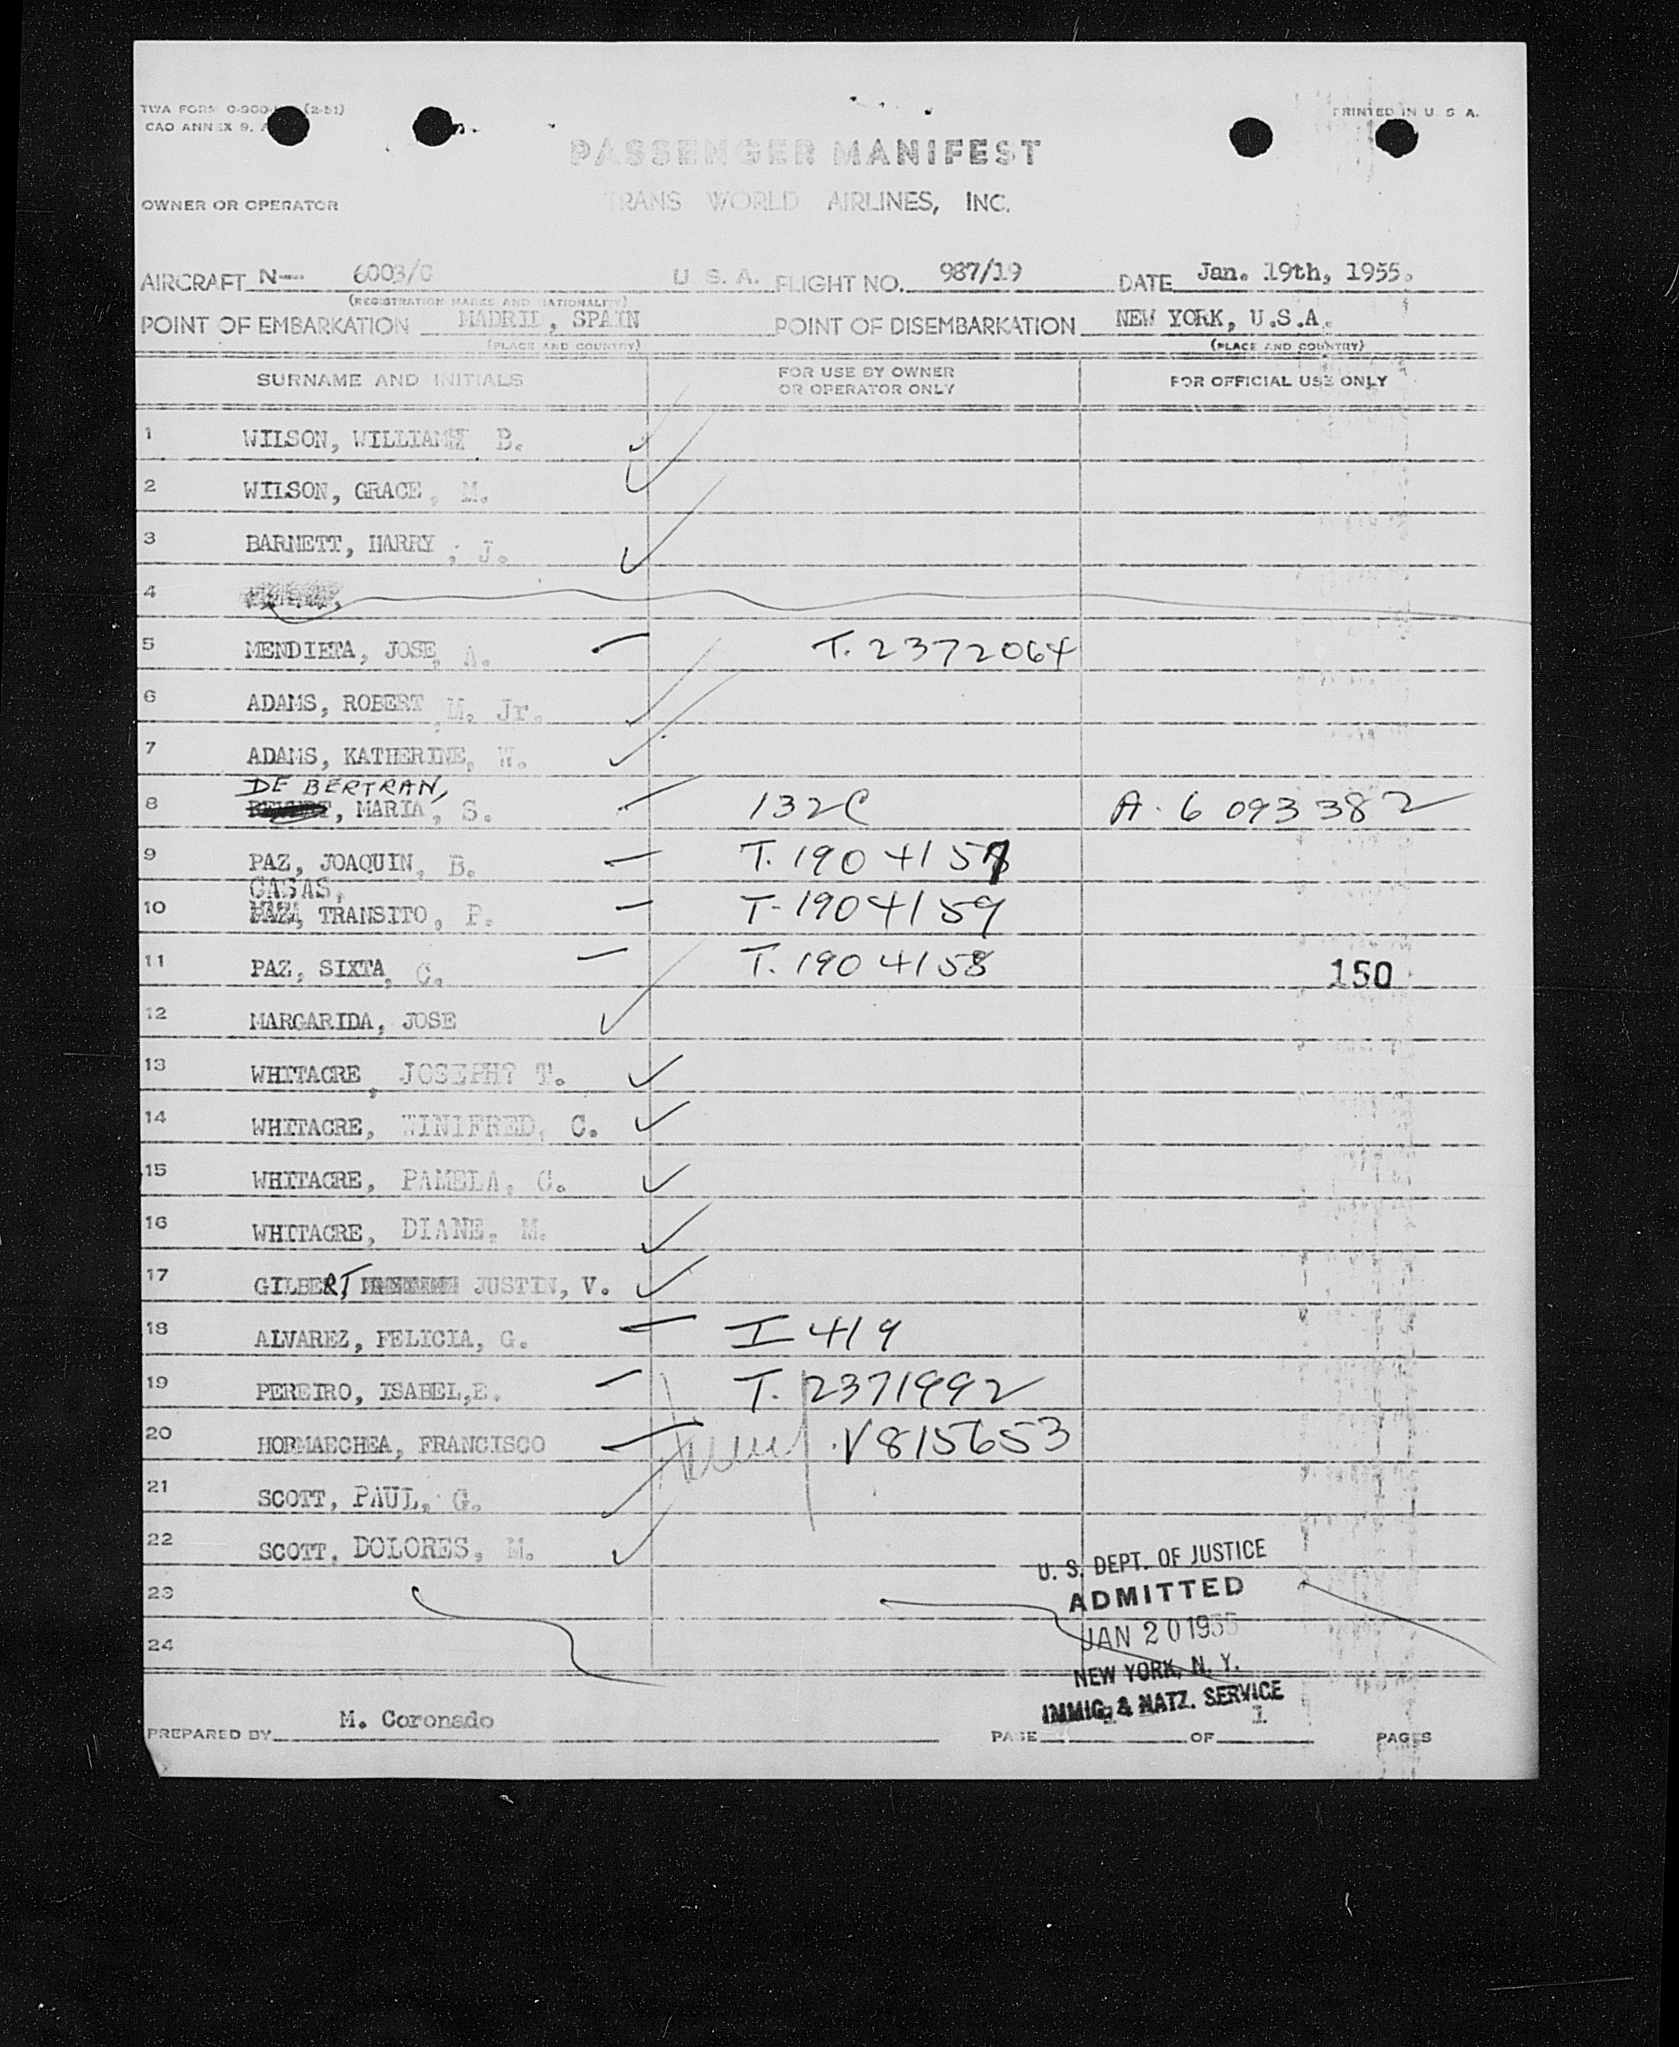 TWA FORM 0-900- (2-51)
CAO ANNEX 9,
PRINTED IN U. S. A.
PASSENGER MANIFEST
OWNER OR OPERATOR TRANS WORLD AIRLINES, INC.
AIRCRAFT N— 6003/C U. S. A. FLIGHT NO. 987/19 DATE Jan. 19th, 1955.
(REGISTRATION MARKS AND NATIONALITY)
POINT OF EMBARKATION MADRID, SPAIN POINT OF DISEMBARKATION NEW YORK, U.S.A.
(PLACE AND COUNTRY) (PLACE AND COUNTRY)
SURNAME AND INITIALS FOR USE BY OWNER OR OPERATOR ONLY FOR OFFICIAL USE ONLY
1 WILSON, WILLIAM B.
2 WILSON, GRACE, M.
3 BARNETT, HARRY, J.
4
5 MENDIETA, JOSE, A. T. 2372064
6 ADAMS, ROBERT, M. Jr.
7 ADAMS, KATHERINE, W.
DE BERTRAN,
8 , MARIA, S. 132C A. 6 093 382
9 PAZ, JOAQUIN, B. T. 1904157
CASAS,
10 PAZ, TRANSITO, P. T-1904159
11 PAZ, SIXTA, C. T. 1904158 150
12 MARGARIDA, JOSE
13 WHITACRE, JOSEPH? T.
14 WHITACRE, WINIFRED, C.
15 WHITACRE, PAMELA, C.
16 WHITACRE, DIANE, M.
17 GILBERT, JUSTIN, V.
18 ALVAREZ, FELICIA, G. I 419
19 PEREIRO, ISABEL,E. T. 2371992
20 HORMAECHEA, FRANCISCO V815653
21 SCOTT, PAUL, G.
22 SCOTT, DOLORES, M.
23
24
U. S. DEPT. OF JUSTICE
ADMITTED
JAN 20 1955
NEW YORK, N. Y.
IMMIG. & NATZ. SERVICE
PREPARED BY M. Coronado PAGE 1 OF 1 PAGES